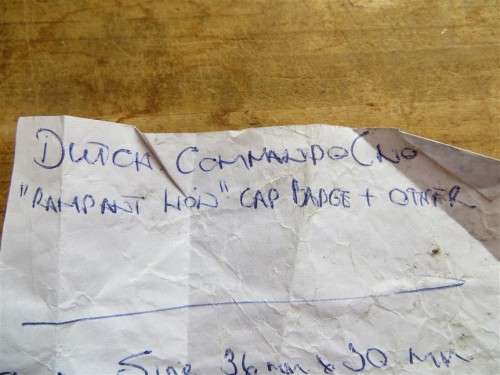 DUTCH COMMANDO (NO
"RAMPANT LION" CAP BADGE + OTHER
SIZE 36mm x 30 mm